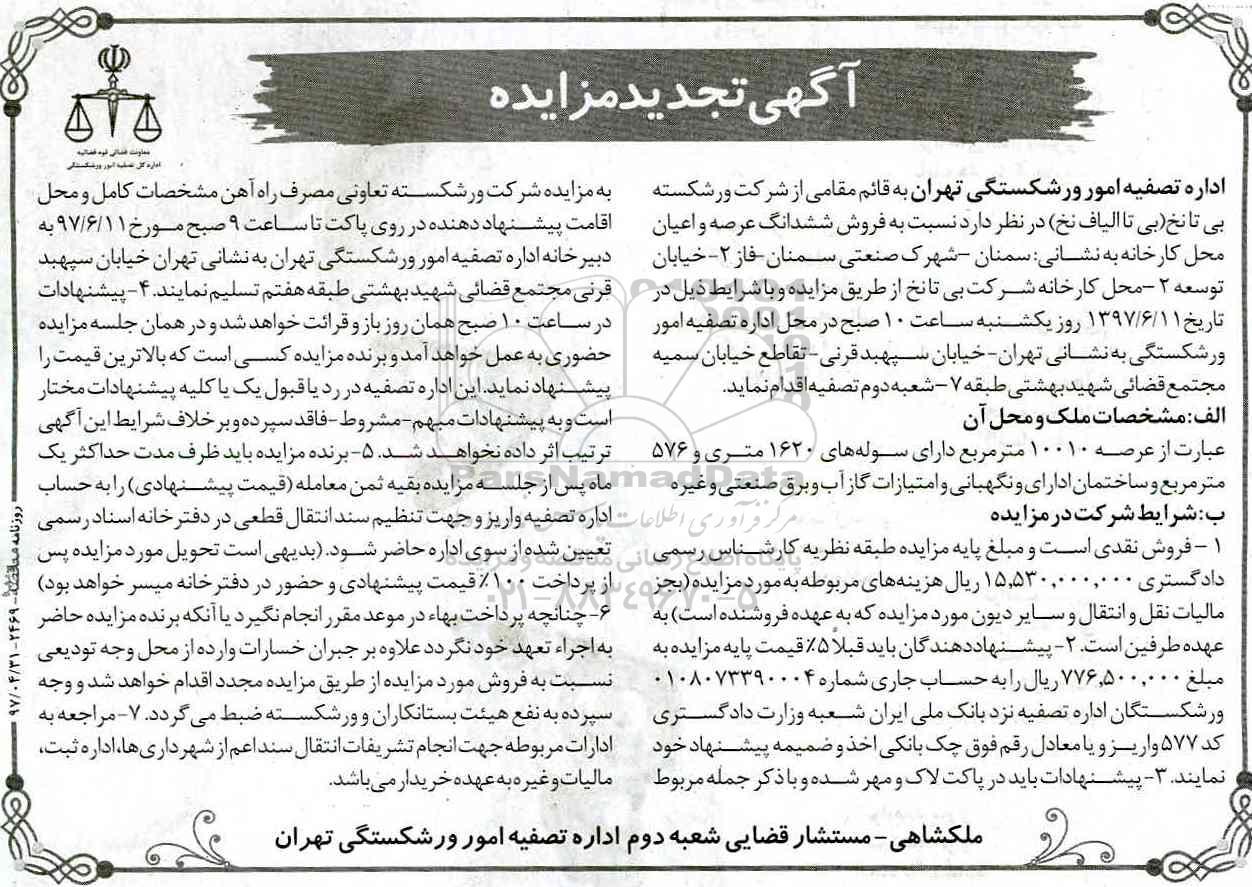 آگهی تجدید مزایده
معاونت قضائی قوه قضائیه
اداره کل تصفیه امور ورشکستگی
اداره تصفیه امور ورشکستگی تهران به قائم مقامی از شرکت ورشکسته
بی تا نخ(بی تا الیاف نخ) در نظر دارد نسبت به فروش ششدانگ عرصه و اعیان
محل کارخانه به نشانی: سمنان -شهرک صنعتی سمنان-فاز ۲-خیابان
توسعه ۲-محل کارخانه شرکت بی تا نخ از طریق مزایده و با شرایط ذیل در
تاریخ ۱۳۹۷/۶/۱۱ روز یکشنبه ساعت ۱۰ صبح در محل اداره تصفیه امور
ورشکستگی به نشانی تهران-خیابان سپهبد قرنی-تقاطع خیابان سمیه
مجتمع قضائی شهید بهشتی طبقه ۷-شعبه دوم تصفیه اقدام نماید.
الف: مشخصات ملک و محل آن
عبارت از عرصه ۱۰۰۱۰ مترمربع دارای سوله‌های ۱۶۲۰ متری و ۵۷۶
مترمربع و ساختمان ادارای و نگهبانی و امتیازات گاز آب و برق صنعتی و غیره
ب: شرایط شرکت در مزایده
۱- فروش نقدی است و مبلغ پایه مزایده طبقه نظریه کارشناس رسمی
دادگستری ۱۵,۵۳۰,۰۰۰,۰۰۰ ریال هزینه‌های مربوطه به مورد مزایده (بجز
مالیات نقل و انتقال و سایر دیون مورد مزایده که به عهده فروشنده است) به
عهده طرفین است. ۲- پیشنهاددهندگان باید قبلاً ۵٪ قیمت پایه مزایده به
مبلغ ۷۷۶,۵۰۰,۰۰۰ ریال را به حساب جاری شماره ۰۱۰۸۰۷۳۳۹۰۰۰۴
ورشکستگان اداره تصفیه نزد بانک ملی ایران شعبه وزارت دادگستری
کد ۵۷۷ واریز و یا معادل رقم فوق چک بانکی اخذ و ضمیمه پیشنهاد خود
نمایند. ۳- پیشنهادات باید در پاکت لاک و مهر شده و با ذکر جمله مربوط
به مزایده شرکت ورشکسته تعاونی مصرف راه آهن مشخصات کامل و محل
اقامت پیشنهاد دهنده در روی پاکت تا ساعت ۹ صبح مورخ ۹۷/۶/۱۱ به
دبیرخانه اداره تصفیه امور ورشکستگی تهران به نشانی تهران خیابان سپهبد
قرنی مجتمع قضائی شهید بهشتی طبقه هفتم تسلیم نمایند. ۴- پیشنهادات
در ساعت ۱۰ صبح همان روز باز و قرائت خواهد شد و در همان جلسه مزایده
حضوری به عمل خواهد آمد و برنده مزایده کسی است که بالاترین قیمت را
پیشنهاد نماید. این اداره تصفیه در رد یا قبول یک یا کلیه پیشنهادات مختار
است و به پیشنهادات مبهم-مشروط-فاقد سپرده و برخلاف شرایط این آگهی
ترتیب اثر داده نخواهد شد. ۵- برنده مزایده باید ظرف مدت حداکثر یک
ماه پس از جلسه مزایده بقیه ثمن معامله (قیمت پیشنهادی) را به حساب
اداره تصفیه واریز و جهت تنظیم سند انتقال قطعی در دفترخانه اسناد رسمی
تعیین شده از سوی اداره حاضر شود. (بدیهی است تحویل مورد مزایده پس
از پرداخت ۱۰۰٪ قیمت پیشنهادی و حضور در دفترخانه میسر خواهد بود)
۶- چنانچه پرداخت بهاء در موعد مقرر انجام نگیرد یا آنکه برنده مزایده حاضر
به اجراء تعهد خود نگردد علاوه بر جبران خسارات وارده از محل وجه تودیعی
نسبت به فروش مورد مزایده از طریق مزایده مجدد اقدام خواهد شد و وجه
سپرده به نفع هیئت بستانکاران و ورشکسته ضبط می گردد. ۷- مراجعه به
ادارات مربوطه جهت انجام تشریفات انتقال سند اعم از شهرداری‌ها، اداره ثبت،
مالیات و غیره به عهده خریدار می‌باشد.
ملکشاهی - مستشار قضایی شعبه دوم اداره تصفیه امور ورشکستگی تهران
ParsNamadData
مرکز فرآوری اطلاعات
پایگاه اطلاع رسانی مناقصه و مزایده
۰۲۱-۸۸۳۴۹۶۷۰-۵